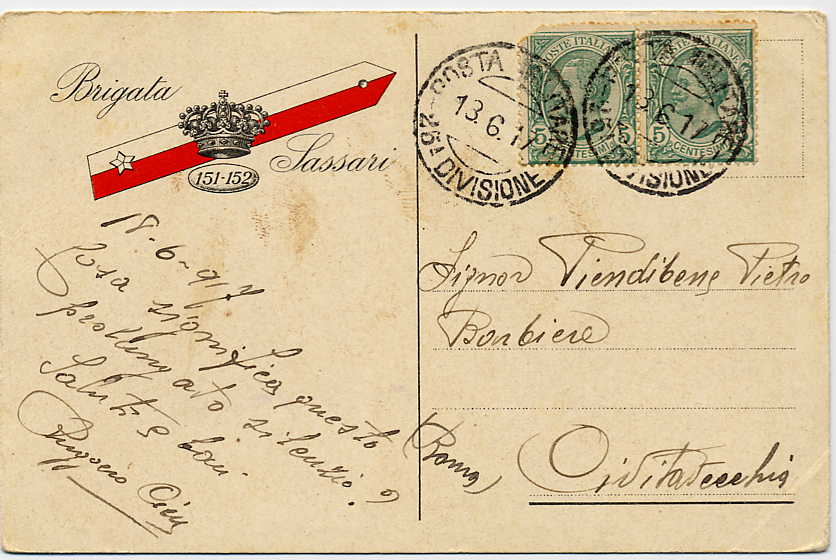 Brigata
Sassari
151-152
POSTE ITALIANE
5 CENTESIMI 5
POSTE ITALIANE
5 CENTESIMI
POSTA MILITARE
13.6.17
45A DIVISIONE
POSTA MILITARE
13.6.17
DIVISIONE
18-6-917
Cosa significa questo
prolungato silenzio?
Saluti e baci
Ruggero
Signor Piendibene Pietro
Barbiere
(Roma)
Civitavecchia